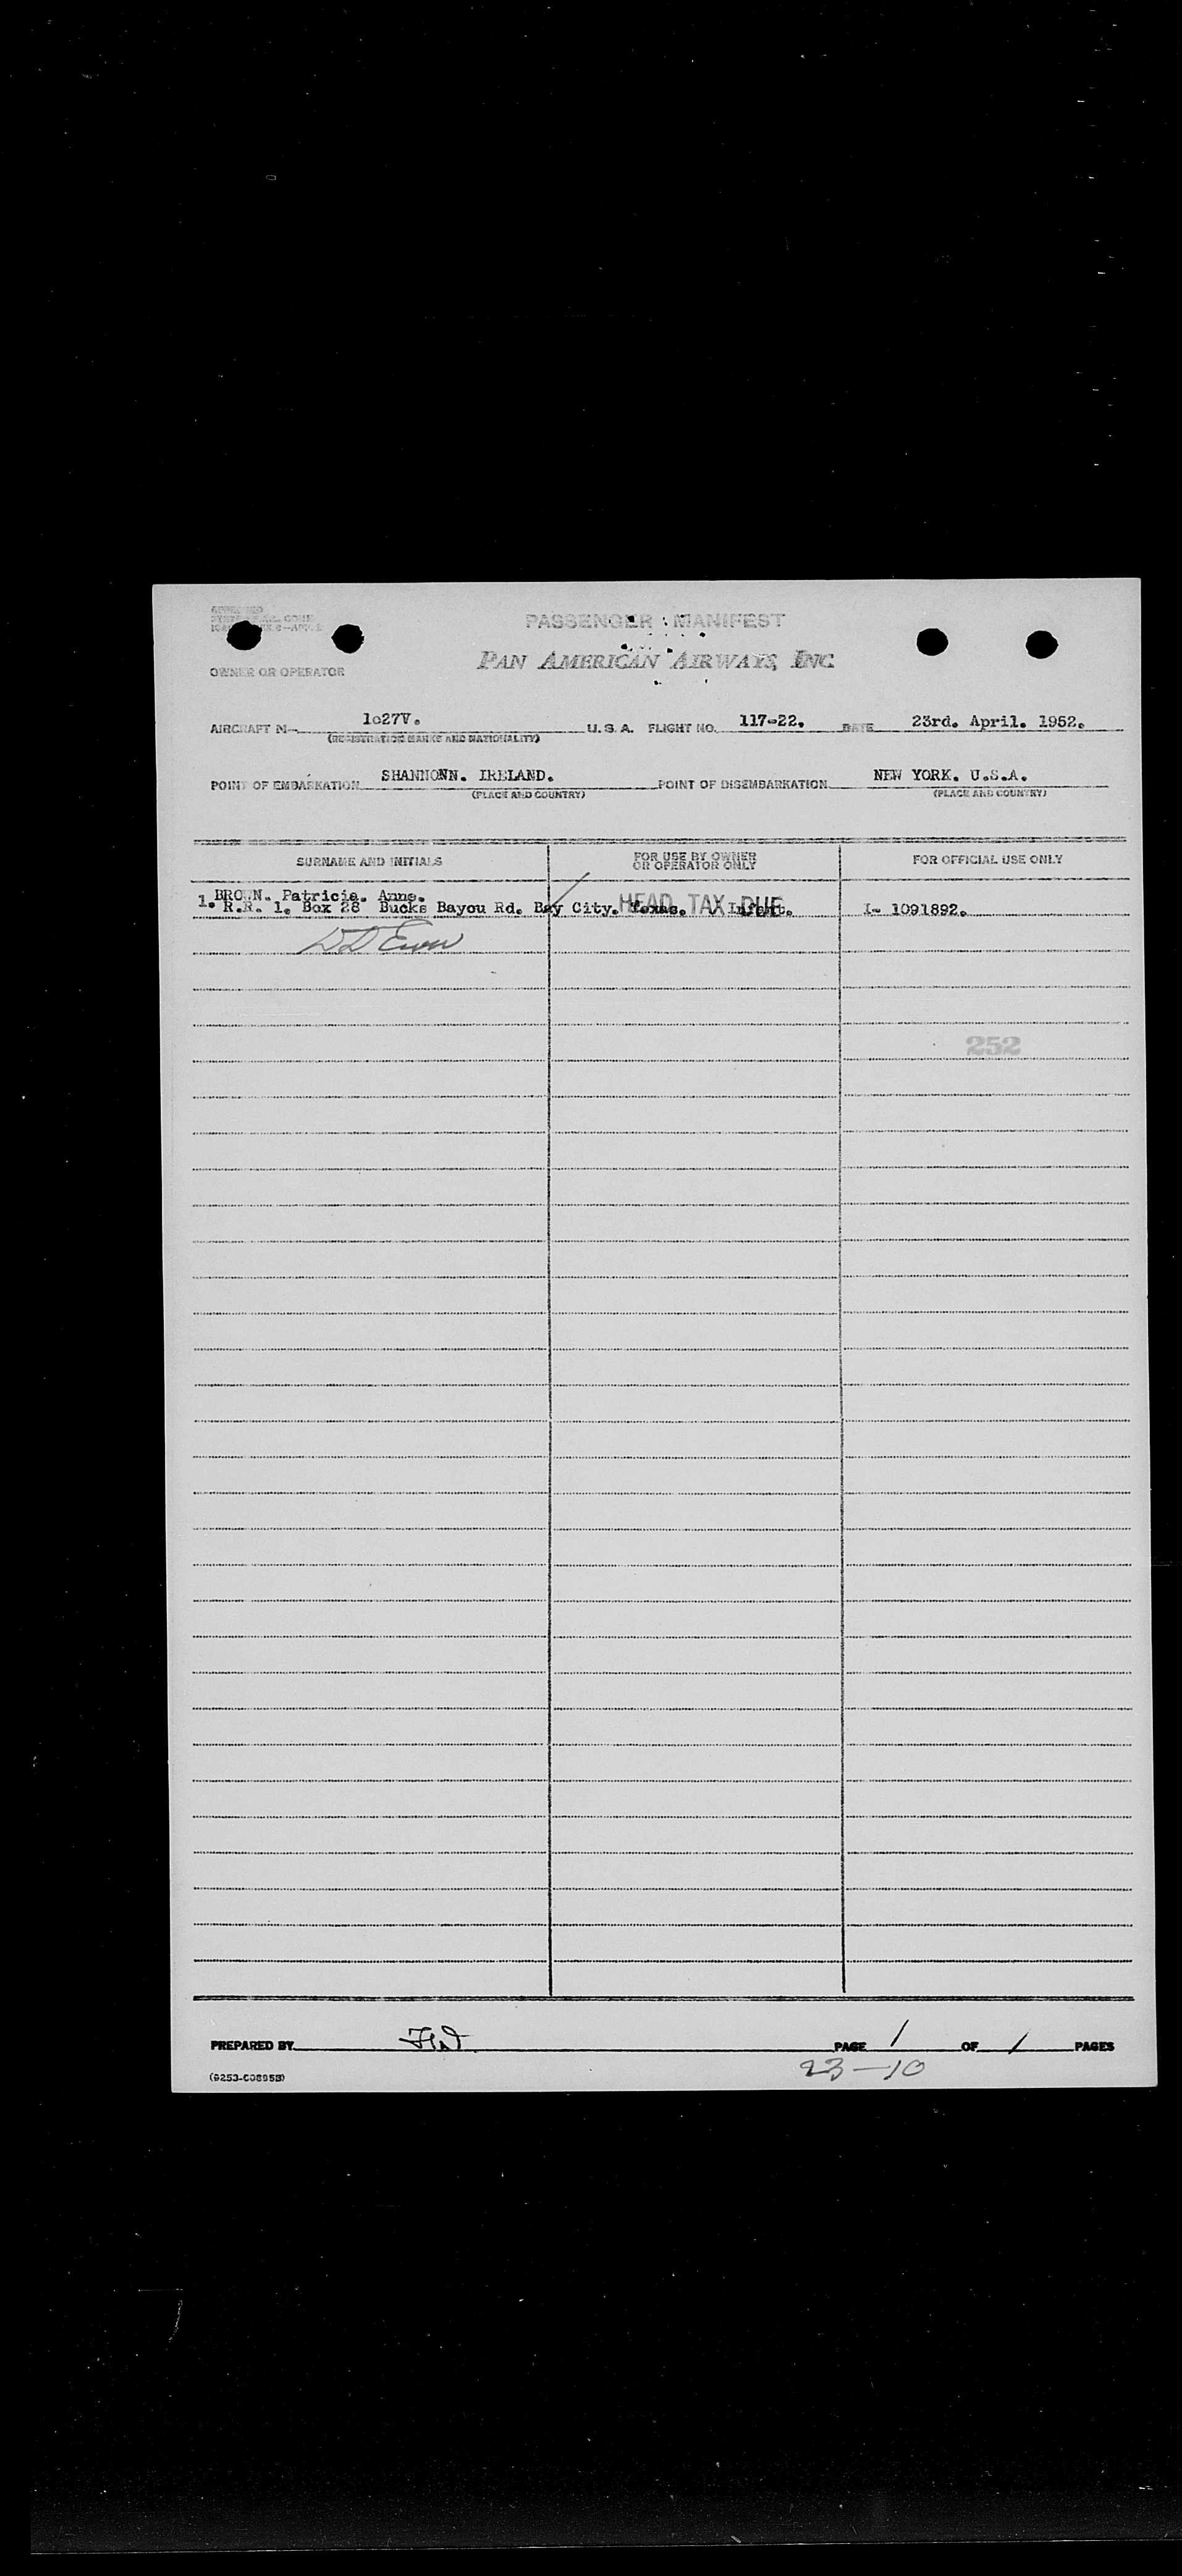 APPROVED
PASSENGER MANIFEST
PAN AMERICAN AIRWAYS, INC.
OWNER OR OPERATOR
AIRCRAFT N- 1027V. U. S. A. FLIGHT NO. 117-22. DATE 23rd. April. 1952.
(REGISTRATION MARKS AND NATIONALITY)
POINT OF EMBARKATION SHANNONN. IRELAND. POINT OF DISEMBARKATION NEW YORK. U.S.A.
(PLACE AND COUNTRY) (PLACE AND COUNTRY)
SURNAME AND INITIALS FOR USE BY OWNER OR OPERATOR ONLY FOR OFFICIAL USE ONLY
1. BROWN. Patricia. Anne.
R.R. 1. Box 28 Bucks Bayou Rd. Bay City. Texas. Infant. I- 1091892.
HEAD TAX DUE
252
PREPARED BY PAGE 1 OF 1 PAGES
23-10
(9253-C0895B)